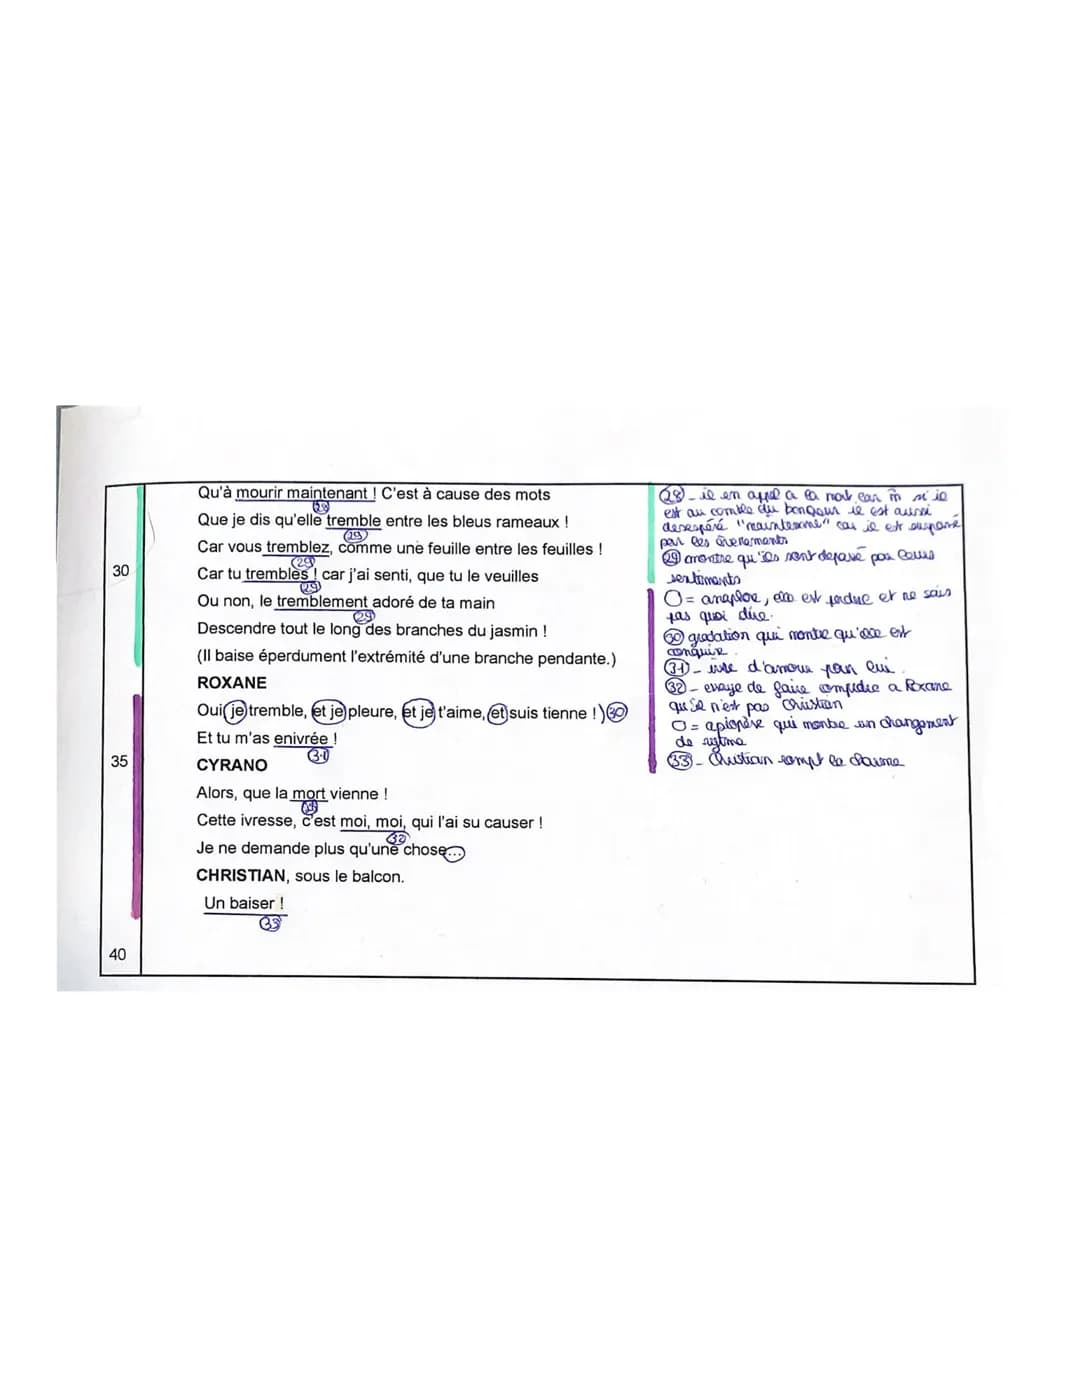 Qu'à mourir maintenant ! C'est à cause des mots
28
Que je dis qu'elle tremble entre les bleus rameaux !
29
Car vous tremblez, comme une feuille entre les feuilles !
29
30
Car tu trembles ! car j'ai senti, que tu le veuilles
29
Ou non, le tremblement adoré de ta main
29
Descendre tout le long des branches du jasmin !
(Il baise éperdument l'extrémité d'une branche pendante.)
ROXANE
Oui je tremble, et je pleure, et je t'aime, et suis tienne !) 30
Et tu m'as enivrée !
31
35
CYRANO
Alors, que la mort vienne !
Cette ivresse, c'est moi, moi, qui l'ai su causer !
32
Je ne demande plus qu'une chose...
CHRISTIAN, sous le balcon.
Un baiser !
33
40
28 - il en appel a la mort car m si il
est au comble du bonheur il est aussi
desespéré "maintenant" car il est
par les évenements
29 montre qu'ils sont depasé par leurs
sentiments
O = anaphore, elle est perdue et ne sais
pas quoi dire.
30 gradation qui montre qu'elle est
conquise.
31 - ivre d'amour pour lui.
32 - essaye de faire comprendre a Roxane
qu'il n'est pas Christian
O = apiopèse qui montre un changement
de rytme
33 - Christian rompt le charme